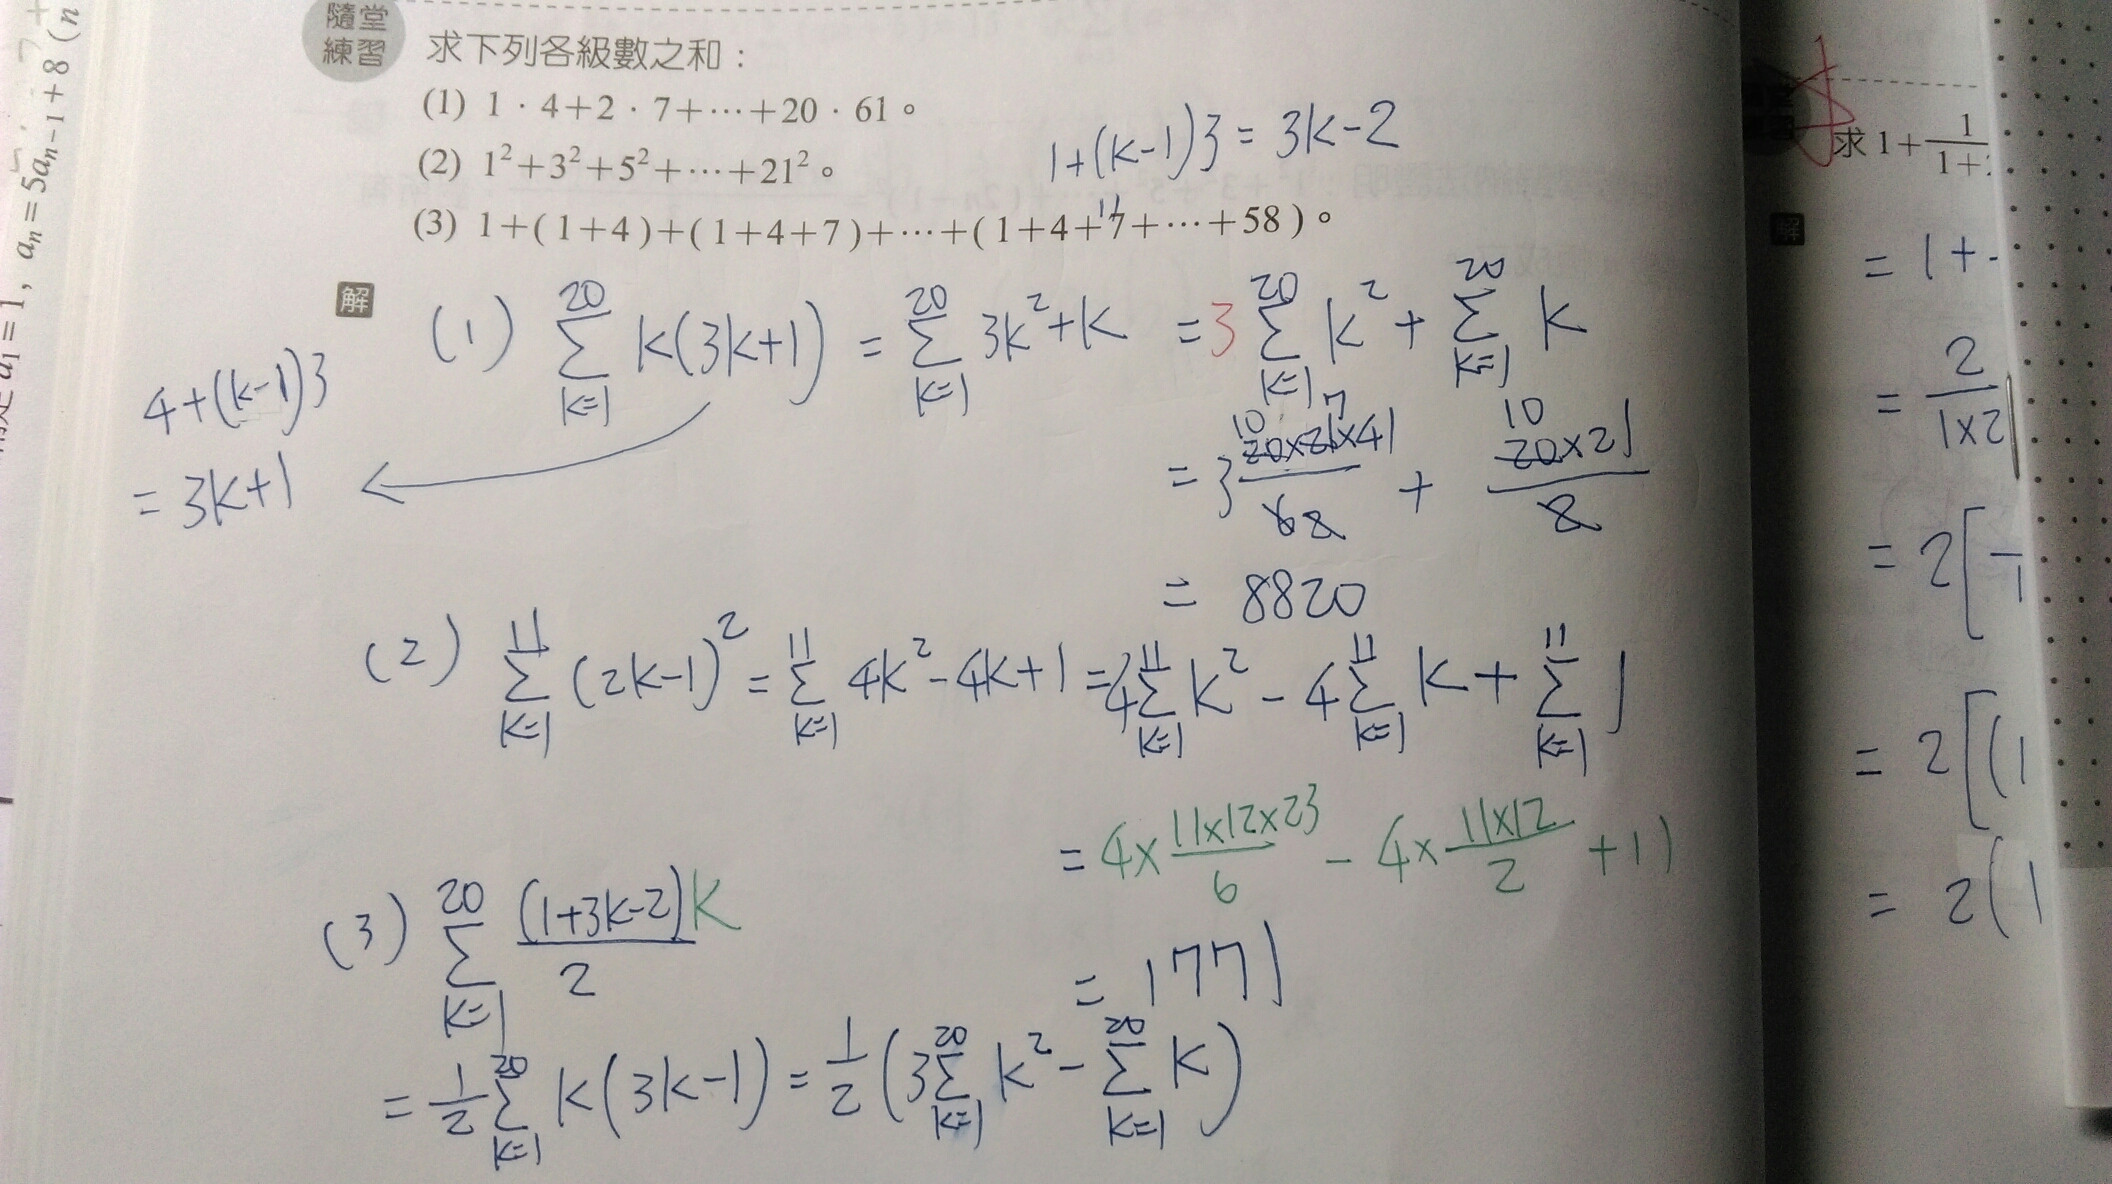 隨堂
練習
求下列各級數之和：
(1) 1·4+2·7+⋯+20·61。
(2) 1²+3²+5²+⋯+21²。
1+(k-1)3=3k-2
(3) 1+(1+4)+(1+4+7)+⋯+(1+4+7+⋯+58)。
解
(1) \sum_{k=1}^{20} k(3k+1) = \sum_{k=1}^{20} 3k²+k = 3\sum_{k=1}^{20} k² + \sum_{k=1}^{20} k
4+(k-1)3
= 3k+1
= 3 \frac{20×21×41}{6} + \frac{20×21}{2}
= 8820
(2) \sum_{k=1}^{11} (2k-1)² = \sum_{k=1}^{11} 4k²-4k+1 = 4\sum_{k=1}^{11} k² - 4\sum_{k=1}^{11} k + \sum_{k=1}^{11} 1
= 4× \frac{11×12×23}{6} - 4× \frac{11×12}{2} + 11
= 1771
(3) \sum_{k=1}^{20} \frac{(1+3k-2)k}{2}
= \frac{1}{2} \sum_{k=1}^{20} k(3k-1) = \frac{1}{2} (3\sum_{k=1}^{20} k² - \sum_{k=1}^{20} k)
a₁=1, aₙ=5aₙ₋₁+8 (n
求 1+ \frac{1}{1+
解
= 1+
= \frac{2}{1×2}
= 2[
= 2[(1
= 2(1